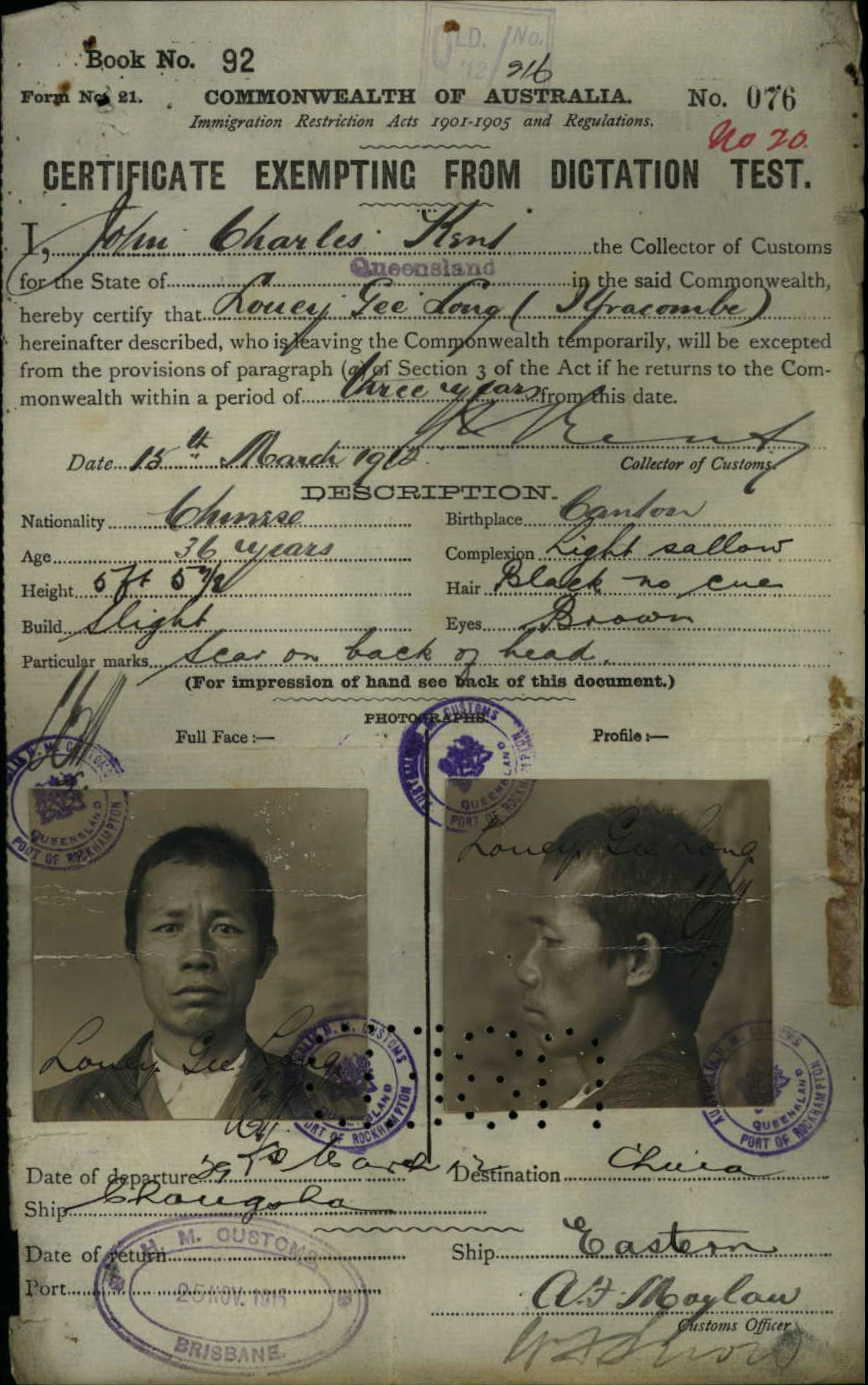 Book No. 92
QLD. No.
12/
916
Form No. 21. COMMONWEALTH OF AUSTRALIA. No. 076
Immigration Restriction Acts 1901-1905 and Regulations.
No 20.
CERTIFICATE EXEMPTING FROM DICTATION TEST.
I, John Charles Kent the Collector of Customs
for the State of Queensland in the said Commonwealth,
hereby certify that Louey Gee Long (Ilfracombe)
hereinafter described, who is leaving the Commonwealth temporarily, will be excepted
from the provisions of paragraph (a) of Section 3 of the Act if he returns to the Com-
monwealth within a period of three years from this date.
Date 15th March 1912 Kent
Collector of Customs.
DESCRIPTION.
Nationality Chinese Birthplace Canton
Age 36 years Complexion Light sallow
Height 5 ft 5 1/2 Hair Black no cue
Build Slight Eyes Brown
Particular marks Scar on back of head.
(For impression of hand see back of this document.)
PHOTOGRAPHS.
Full Face :— Profile :—
H. M. CUSTOMS
AUSTRALIA
QUEENSLAND
PORT OF ROCKHAMPTON
H. M. CUSTOMS
AUSTRALIA
QUEENSLAND
PORT OF ROCKHAMPTON
Louey Gee Long
Louey Gee Long
H. M. CUSTOMS
QUEENSLAND
PORT OF ROCKHAMPTON
CUSTOMS
AUSTRALIA
QUEENSLAND
PORT OF ROCKHAMPTON
Date of departure 29th March 12 Destination China
Ship Changsha
Date of return Ship Eastern
Port
H. M. CUSTOMS
25 NOV.
BRISBANE
A.F. Moylan
Customs Officer